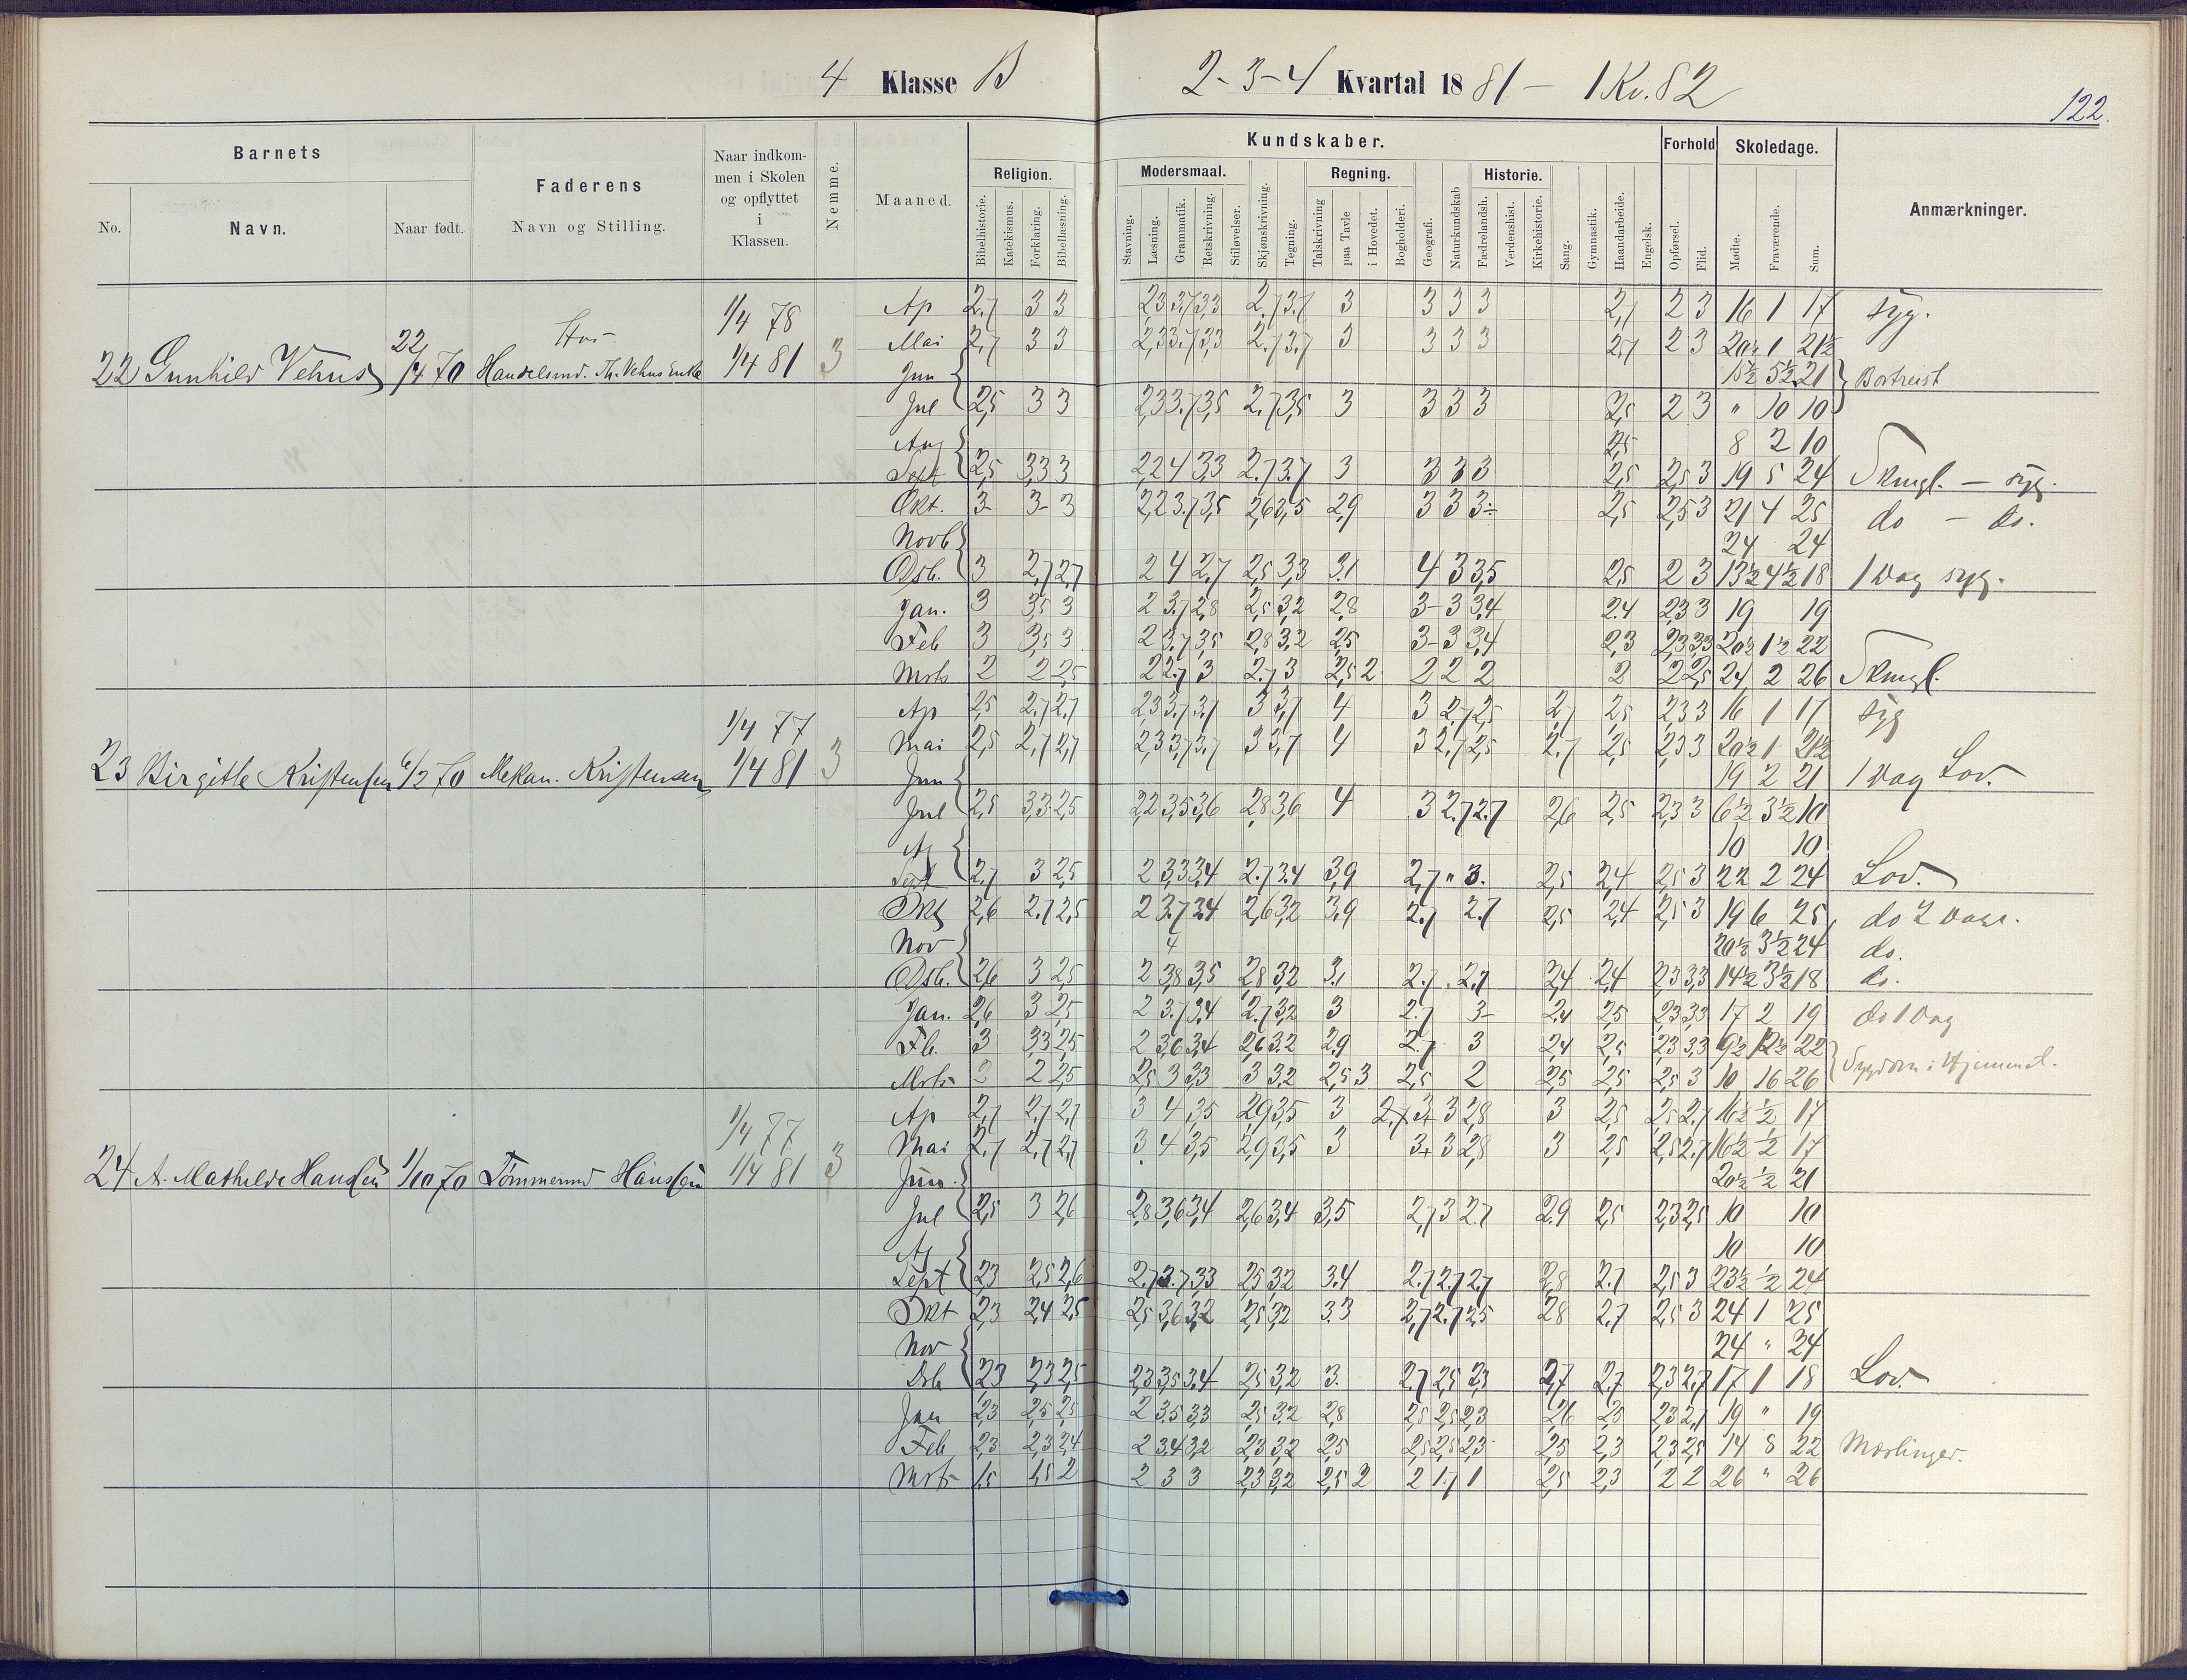 4 Klasse B
2-3-4 Kvartal 1881 — 1 Kv. 82
122.
Barnets
No.
Navn.
Naar født.
Faderens
Navn og Stilling.
Naar indkom-
men i Skolen
og opflyttet
i
Klassen.
Nemme.
Maaned.
Religion.
Bibelhistorie.
Katekismus.
Forklaring.
Bibellæsning.
Kundskaber.
Modersmaal.
Stavning.
Læsning.
Grammatik.
Retskrivning.
Stiløvelser.
Skjønskrivning.
Tegning.
Regning.
Talskrivning
paa Tavle
i Hovedet.
Bogholderi.
Geografi.
Naturkundskab
Historie.
Fædrelandsh.
Verdenshist.
Kirkehistorie.
Sang.
Gymnastik.
Haandarbeide.
Engelsk.
Forhold
Opførsel.
Flid.
Skoledage.
Mødte.
Fraværende.
Sum.
Anmærkninger.
22 Gunhild Vehus 22/4 70 Handelsmd. Th. Vehus Enke 1/4 78 1/4 81 3
Ap 2,7 3 3 2,3 3,7 3,3 2,7 3,7 3 3 3 3 2,7 2 3 16 1 17 syg.
Mai 2,7 3 3 2,3 3,7 3,3 2,7 3,7 3 3 3 3 2,7 2 3 20½ 1 21½
Jun 15½ 5½ 21 Bortreist
Jul 2,5 3 3 2,3 3,7 3,5 2,7 3,5 3 3 3 3 2,5 2 3 " 10 10
Aug 2,5 8 2 10
Sept 2,5 3,3 3 2,2 4 3,3 2,7 3,7 3 3 3 3 2,5 2,5 3 19 5 24 — syg.
Okt. 3- 3- 3 2,2 3,7 3,5 2,6 3,5 2,9 3 3 3÷ 2,5 2,5 3 21 4 25 do — do.
Novb 24 24
Dsb. 3 2,7 2,7 2 4 2,7 2,5 3,3 3,1 4 3 3,5 2,5 2 3 13½ 4½ 18 1 Dag syg.
Jan. 3 3,5 3 2 3,7 2,8 2,5 3,2 2,8 3- 3 3,4 2,4 2,3 3 19 19
Feb 3 3,5 3 2 3,7 3,5 2,8 3,2 2,5 3- 3 3,4 2,3 2,3 3,3 20½ 1½ 22
Mrts 2 2 2,5 2 2,7 3 2,7 3 2,5 2 2 2 2 2 2 2,5 24 2 26
23 Birgitte Kristensen 6/2 70 Mekan. Kristensen 1/4 77 1/4 81 3
Ap 2,5 2,7 2,7 2,3 3,7 3,7 3 3,7 4 3 2,7 2,5 2,7 2,5 2,3 3 16 1 17 syg
Mai 2,5 2,7 2,7 2,3 3,7 3,7 3 3,7 4 3 2,7 2,5 2,7 2,5 2,3 3 20½ 1 21½
Jun 19 2 21 1 Dag Lov.
Jul 2,5 3,3 2,5 2,2 3,5 3,6 2,8 3,6 4 3 2,7 2,7 2,6 2,5 2,3 3 6½ 3½ 10
Ag 10 10
Sept 2,7 3 2,5 2 3,3 3,4 2,7 3,4 3,9 2,7 " 3. 2,5 2,4 2,5 3 22 2 24 Lov.
Okt 2,6 2,7 2,5 2 3,7 3,4 2,6 3,2 3,9 2,7 2,7 2,5 2,4 2,5 3 19 6 25 do 2 Dage.
Nov 4 20½ 3½ 24 do.
Dsb. 2,6 3 2,5 2 3,8 3,5 2,8 3,2 3,1 2,7 2,7 2,4 2,4 2,3 3,3 14½ 3½ 18 do.
Jan. 2,6 3 2,5 2 3,7 3,4 2,7 3,2 3 2,7 3- 2,4 2,5 2,3 3,3 17 2 19 do 1 Dag
Fb. 3 3,3 2,5 2 3,6 3,4 2,6 3,2 2,9 2,7 3 2,4 2,5 2,3 3,3 9½ 12½ 22 Sygdom i Hjemmet.
Mrts 2 2 2,5 2,5 3 3,3 3 3,2 2,5 3 2,5 2 2,5 2,5 2,5 3 10 16 26
24 A. Mathilde Hansen 1/10 70 Tømmermd Hansen 1/4 77 1/4 81 3
Ap 2,7 2,7 2,7 3 4 3,5 2,9 3,5 3 2,7 3+ 3 2,8 3 2,5 2,5 2,7 16½ ½ 17
Mai 2,7 2,7 2,7 3 4 3,5 2,9 3,5 3 3+ 3 2,8 3 2,5 2,5 2,7 16½ ½ 17
Jun. 20½ ½ 21
Jul 2,5 3 2,6 2,8 3,6 3,4 2,6 3,4 3,5 2,7 3 2,7 2,9 2,5 2,3 2,5 10 10
Ag 10 10
Sept 2,3 2,5 2,6 2,7 3,7 3,3 2,5 3,2 3,4 2,7 2,7 2,7 2,8 2,7 2,5 3 23½ ½ 24
Okt 2,3 2,4 2,5 2,5 3,6 3,2 2,5 3,2 3,3 2,7 2,7 2,5 2,8 2,7 2,5 3 24 1 25
Nov 24 " 24
Dsb 2,3 2,3 2,5 2,3 3,5 3,4 2,5 3,2 3. 2,7 2,5 2,3 2,7 2,7 2,3 2,7 17 1 18 Lov.
Jan 2,3 2,5 2,5 2 3,5 3,3 2,5 3,2 2,8 2,5 2,5 2,3 2,6 2,5 2,3 2,7 19 " 19
Feb 2,3 2,3 2,4 2 3,4 3,2 2,3 3,2 2,5 2,5 2,5 2,3 2,5 2,3 2,3 2,5 14 8 22 Mæslinger.
Mrts 1,5 1,5 2 2 3 3 2,3 3,2 2,5 2 2 1,7 1 2,5 2,3 2 2 26 " 26